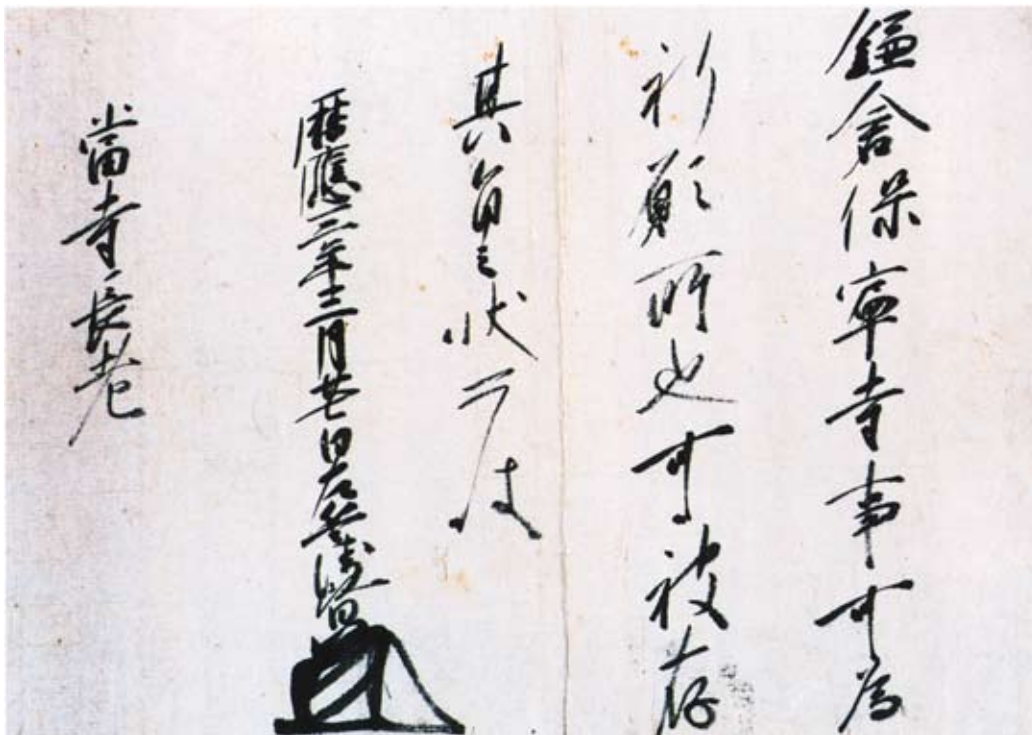 鎌倉保寧寺事可為
祈願所也可被存
其旨之状如件
暦應三年十二月廿七日左兵衛督
當寺長老